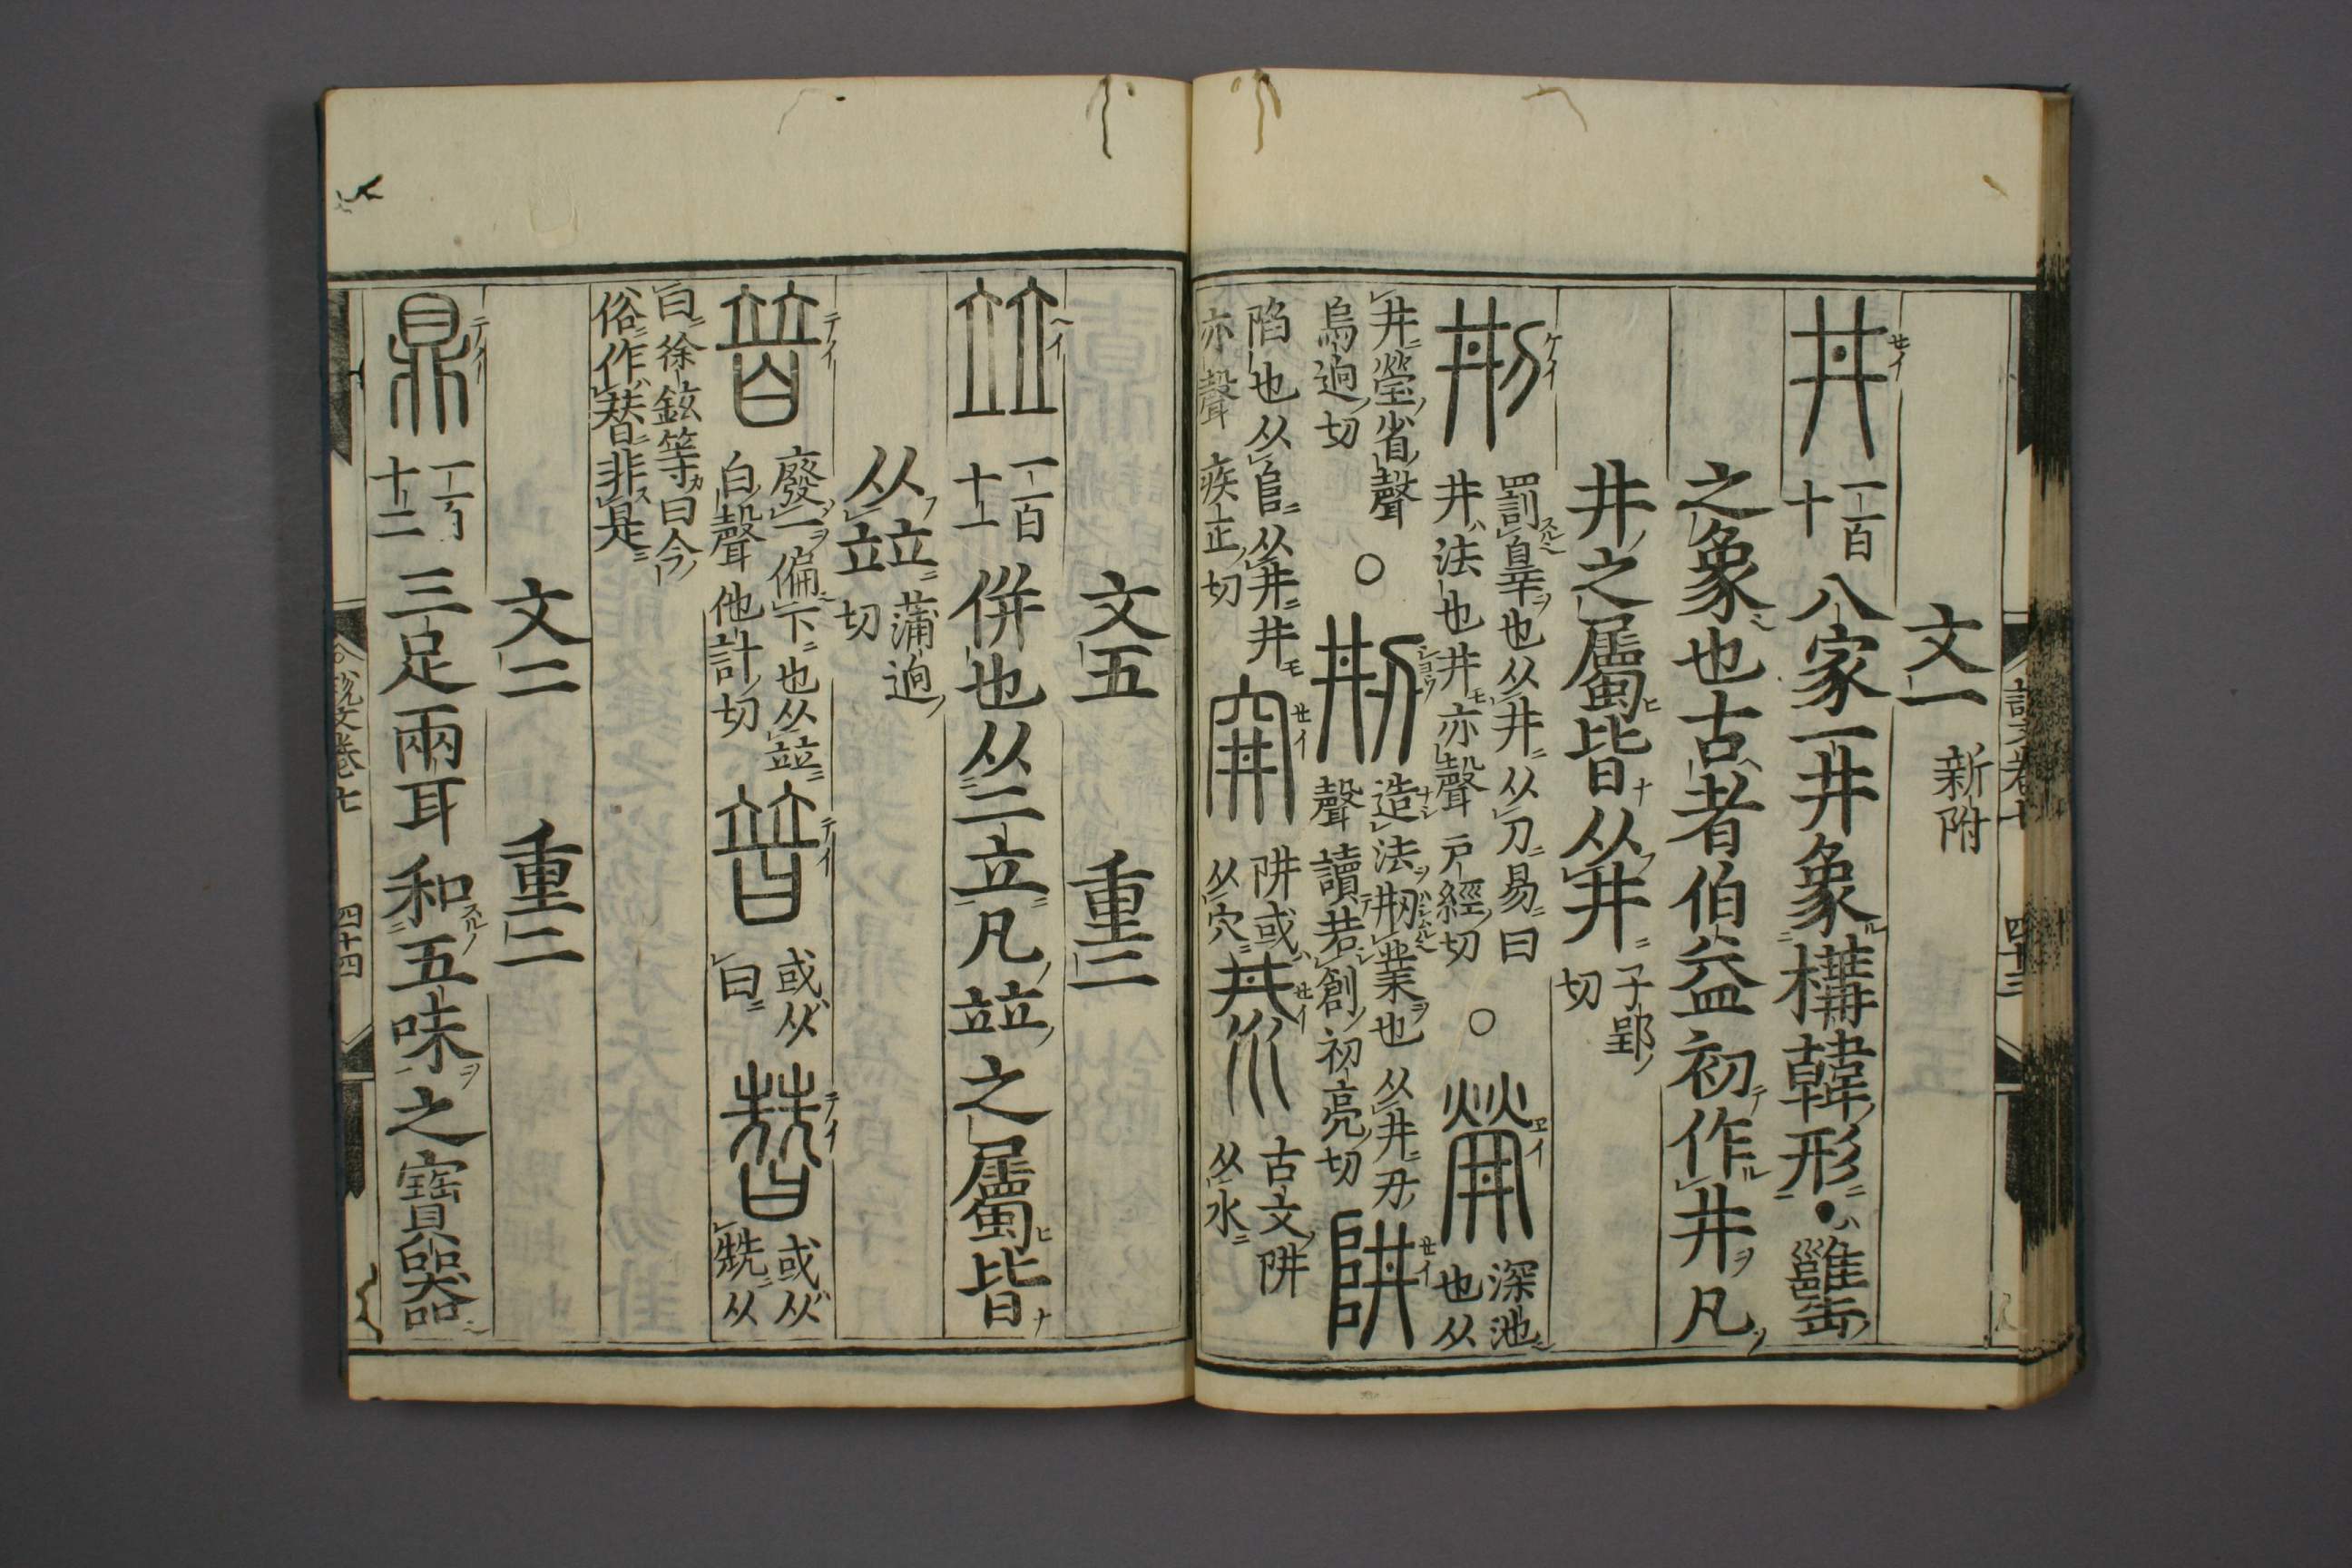 文一 新附
丼 セイ 一百 八家一井象構韓形・䍃缶
十
之象也古者伯益初作井凡
井之屬皆从井 子郢
切
㓝 ケイ 罰辠也从井从刀易曰
井法也井亦聲戸經切
○ 𤇾 エイ 深池
也从
井瑩省聲
烏迥切
○ 刱 シヨウ 造法刱業也从井刃
聲讀若創初亮切
阱 セイ
陷也从𨸏从井井
亦聲疾正切
穽 セイ 阱或
从穴
汬 セイ 古文阱
从水
説文卷七 四十三
文五 重二
竝 ヘイ 一百 併也从二立凡竝之屬皆
十一
从竝 蒲迥
切
暜 テイ 廢一偏下也从竝
白聲他計切
暜 テイ 或从
曰
朁 テイ 或从
兟从
曰徐鉉等曰今
俗作替非是
文二 重二
鼎 テイ 一百 三足兩耳和五味之寶器
十二
説文卷七 四十四